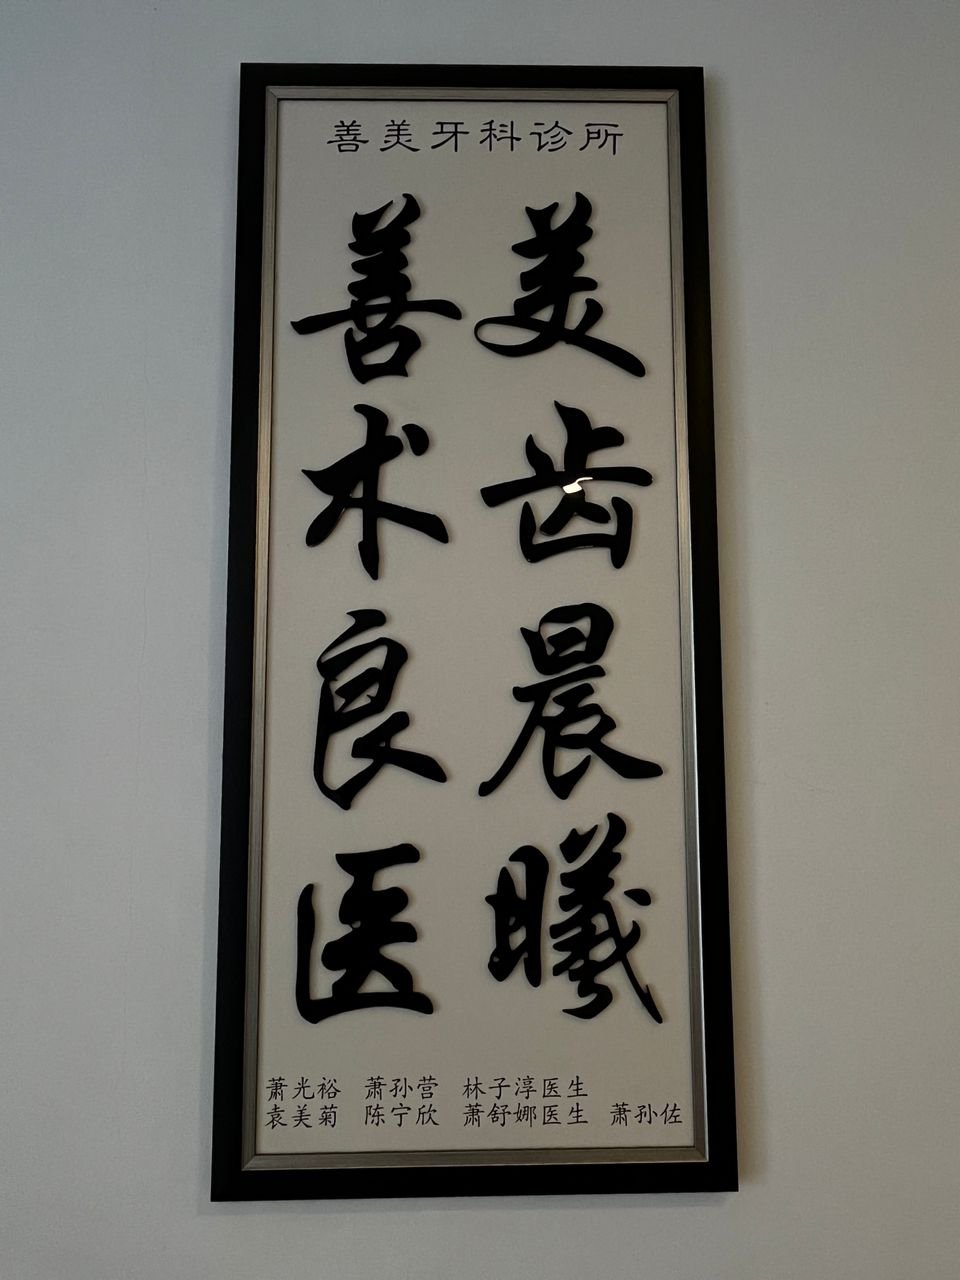 善美牙科诊所
美齿晨曦
善术良医
萧光裕 萧孙营 林子淳医生
袁美菊 陈宁欣 萧舒娜医生 萧孙佐